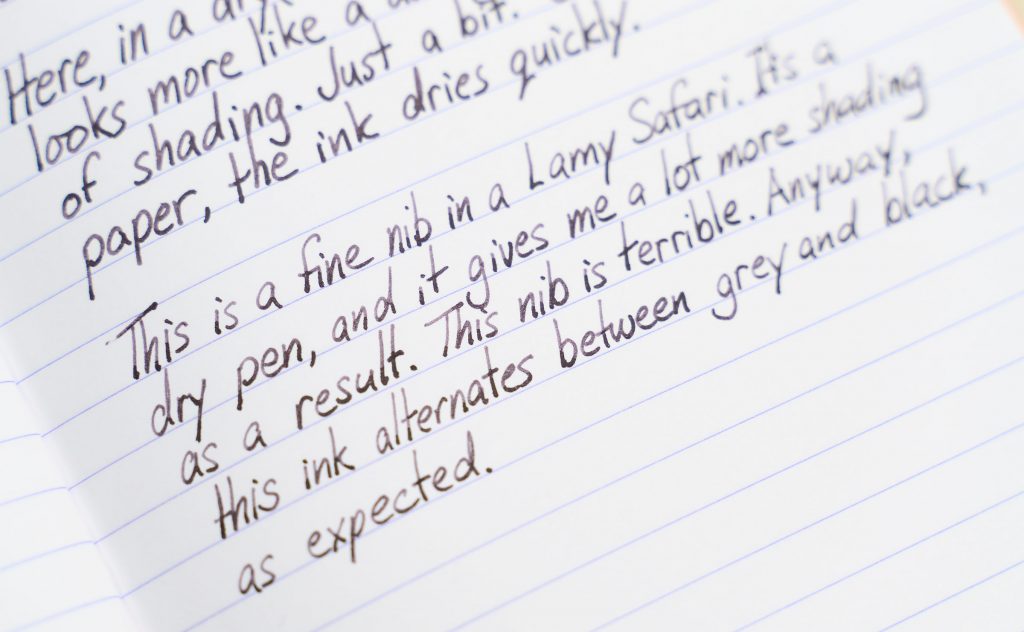 Here, in a
looks more like a
of shading. Just a bit.
paper, the ink dries quickly.
This is a fine nib in a Lamy Safari. It's a
dry pen, and it gives me a lot more shading
as a result. This nib is terrible. Anyway,
this ink alternates between grey and black,
as expected.